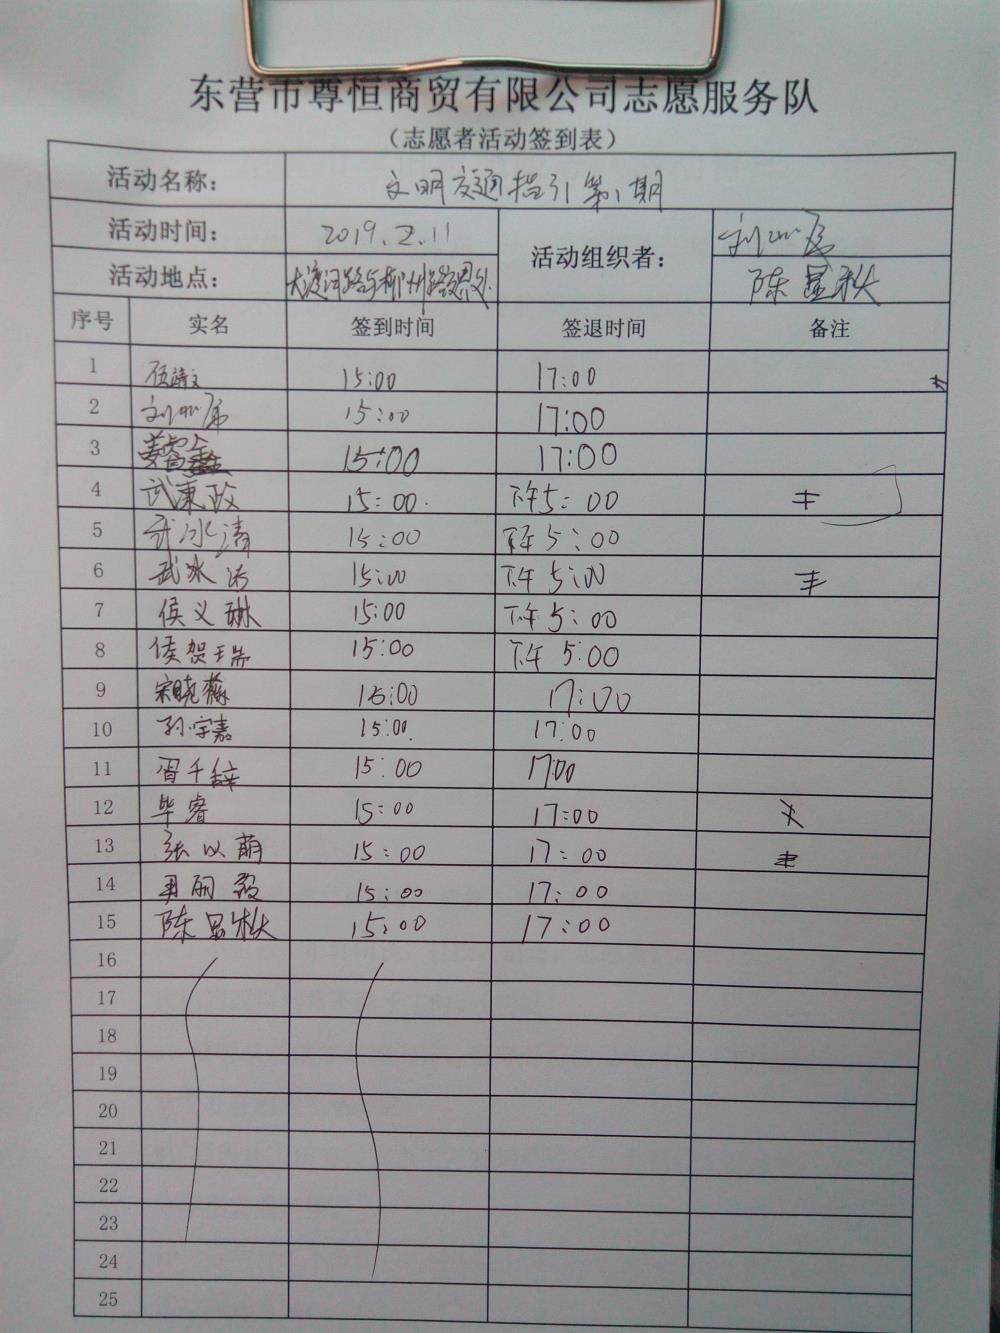 东营市尊恒商贸有限公司志愿服务队
（志愿者活动签到表）
活动名称： 文明交通指引第1期
活动时间： 2019.2.11 活动组织者：
活动地点： 大渡河路与柳州路 陈显秋
序号 实名 签到时间 签退时间 备注
1 15:00 17:00
2 15:00 17:00
3 姜睿鑫 15:00 17:00
4 武东政 15:00. 下午5:00
5 武冰清 15:00 下午5:00
6 武冰洁 15:00 下午5:00
7 侯义琳 15:00 下午5:00
8 侯贺瑞 15:00 下午5:00
9 宋晓 15:00 17:00
10 孙宇嘉 15:00. 17:00
11 千 15:00 17:00
12 毕睿 15:00 17:00
13 张以萌 15:00 17:00
14 15:00 17:00
15 陈显秋 15:00 17:00
16
17
18
19
20
21
22
23
24
25